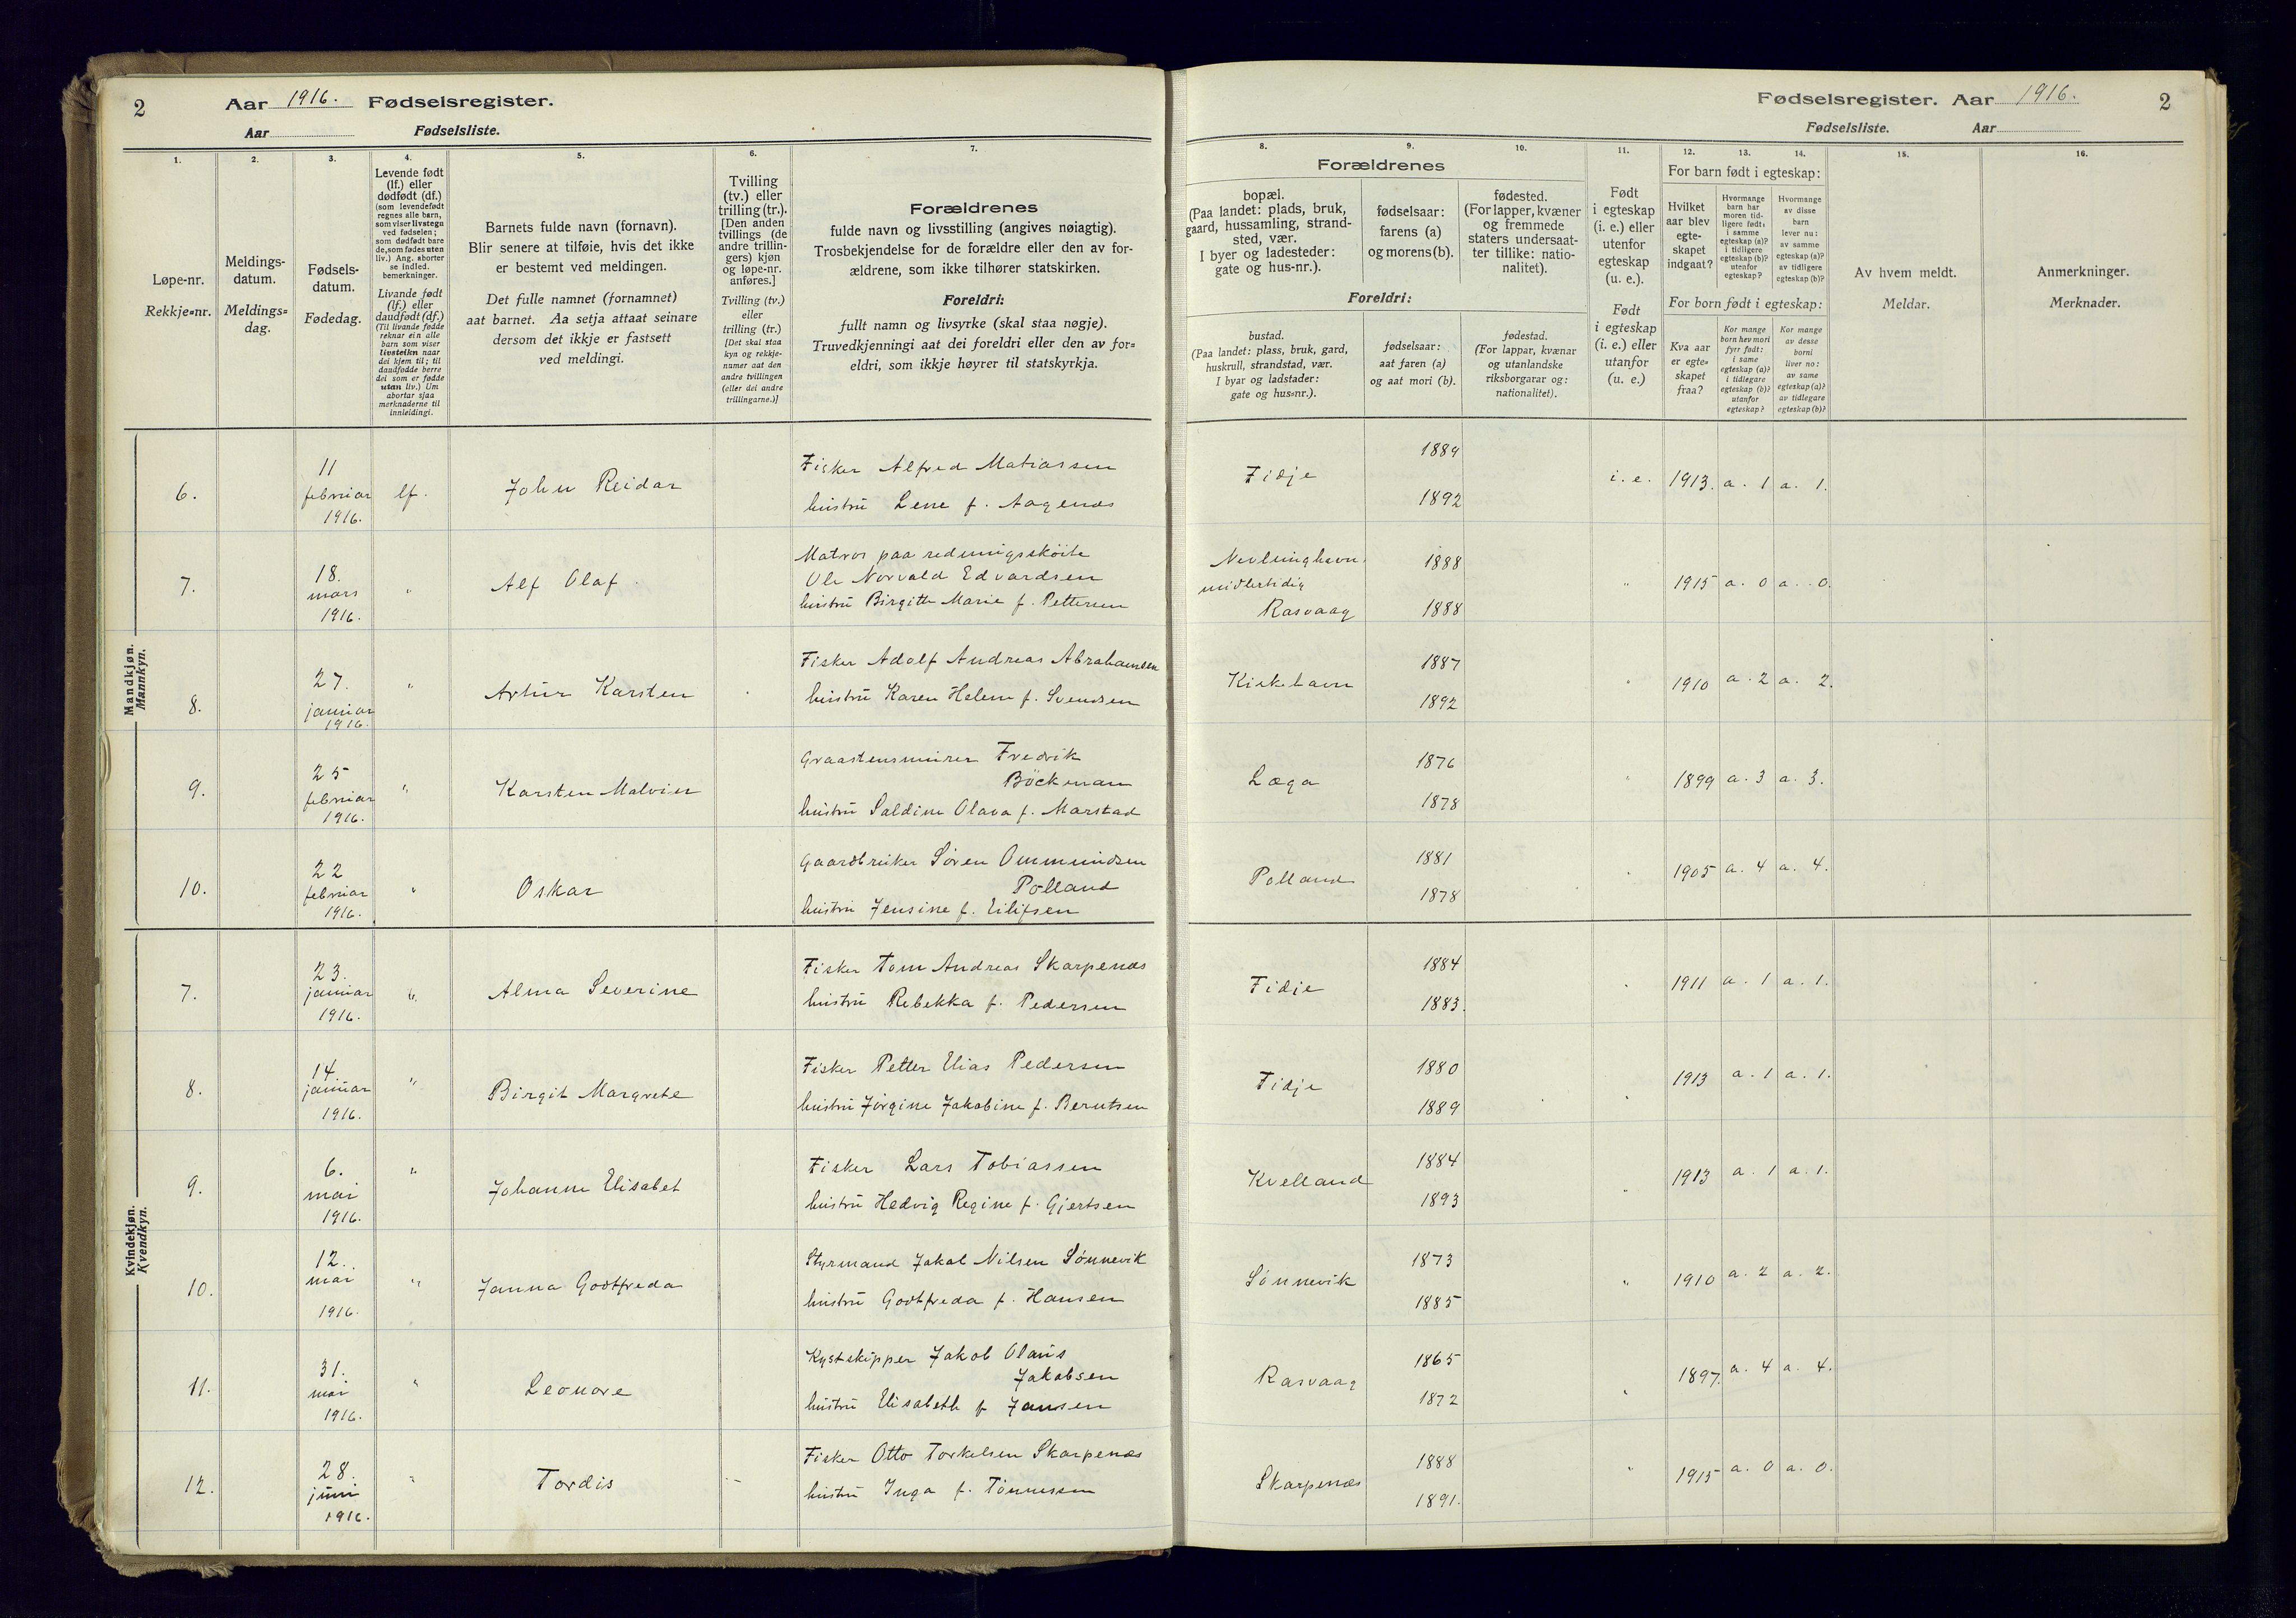 2
Aar 1916. Fødselsregister.
Aar Fødselsliste.
Fødselsregister. Aar 1916.
2
Fødselsliste. Aar
1.
Løpe-nr.
Rekkje=nr.
2.
Meldings-
datum.
Meldings=
dag.
3.
Fødsels-
datum.
Fødedag.
4.
Levende født
(lf.) eller
dødfødt (df.)
(som levendefødt
regnes alle barn,
som viser livstegn
ved fødselen;
som dødfødt bare
de, som fødes uten
liv.) Ang. aborter
se indled.
bemerkninger.
Livande født
(lf.) eller
daudfødt (df.)
(Til livande fødde
reknar ein alle
barn som viser
livsteikn naar
dei kjem til; til
daudfødde berre
dei som er fødde
utan liv.) Um
abortar sjaa
merknaderne til
innleidingi.
5.
Barnets fulde navn (fornavn).
Blir senere at tilføie, hvis det ikke
er bestemt ved meldingen.
Det fulle namnet (fornamnet)
aat barnet. Aa setja attaat seinare
dersom det ikkje er fastsett
ved meldingi.
6.
Tvilling
(tv.) eller
trilling (tr.).
[Den anden
tvillings (de
andre trillin-
gers) kjøn
og løpe-nr.
anføres.]
Tvilling (tv.)
eller
trilling (tr.)
[Det skal staa
kyn og rekkje-
numer aat den
andre tvillingen
(eller dei andre
trillingarne.)]
7.
Forældrenes
fulde navn og livsstilling (angives nøiagtig).
Trosbekjendelse for de forældre eller den av for-
ældrene, som ikke tilhører statskirken.
Foreldri:
fullt namn og livsyrke (skal staa nøgje).
Truvedkjenningi aat dei foreldri eller den av for=
eldri, som ikkje høyrer til statskyrkja.
8. 9. 10.
Forældrenes
bopæl.
(Paa landet: plads, bruk,
gaard, hussamling, strand-
sted, vær.
I byer og ladesteder:
gate og hus-nr.).
fødselsaar:
farens (a)
og morens (b).
fødested.
(For lapper, kvæner
og fremmede
staters undersaat-
ter tillike: natio-
nalitet).
Foreldri:
bustad.
(Paa landet: plass, bruk, gard,
huskrull, strandstad, vær.
I byar og ladstader:
gate og hus=nr.).
fødselsaar:
aat faren (a)
og aat mori (b).
fødestad.
(For lappar, kvænar
og utanlandske
riksborgarar og:
nationalitet).
11.
Født
i egteskap
(i. e.) eller
utenfor
egteskap
(u. e.).
Født
i egteskap
(i. e.) eller
utanfor
(u. e.)
12. 13. 14.
For barn født i egteskap:
Hvilket
aar blev
egte-
skapet
indgaat?
Hvormange
barn har
moren tid-
ligere født:
i samme
egteskap (a)?
i tidligere
egteskap (b)?
utenfor
egteskap?
Hvormange
av disse
barn
lever nu:
av samme
egteskap (a)?
av tidligere
egteskap (b)?
For born født i egteskap:
Kva aar
er egte=
skapet
fraa?
Kor mange
born hev mori
fyrr født:
i same
egteskap (a)?
i tidlegare
egteskap (b)?
utanfor
egteskap?
Kor mange
av desse
borni
liver no:
av same
egteskap (a)?
av tidlegare
egteskap (b)?
15.
Av hvem meldt.
Meldar.
16.
Anmerkninger.
Merknader.
Mandkjøn.
Mannkyn.
6. 11 februar 1916. lf. John Reidar
Fisker Alfred Matiassen
hustru Lene f. Aagenæs
Fidje 1889 1892 i. e. 1913. a. 1 a. 1.
7. 18. mars 1916. " Alf Olaf.
Matros paa redningssköite
Ole Norvald Edvardsen
hustru Birgitte Marie f. Pettersen
Nevlunghavn, midlertidig Rasvaag 1888 1888 " 1915 a. 0 a. 0.
8. 27. januar 1916. " Artur Karsten
Fisker Adolf Andreas Abrahamsen
hustru Karen Helene f. Svendsen
Kirkehavn 1887 1892 " 1910 a. 2 a. 2.
9. 25 februar 1916. " Karsten Malvin
Graastensmurer Fredrik
Böckman
hustru Saldine Olava f. Marstad
Læga 1876 1878 " 1899 a. 3 a. 3.
10. 22 februar 1916. " Oskar
Gaardbruker Sören Ommundsen
Polland
hustru Jensine f. Eilifsen
Polland 1881 1878 " 1905 a. 4 a. 4.
Kvindekjøn.
Kvendkyn.
7. 23. januar 1916. " Alma Severine
Fisker Tom Andreas Skarpenæs
hustru Rebekka f. Pedersen
Fidje 1884 1883. " 1911 a. 1 a. 1.
8. 14. januar 1916. " Birgit Margrete
Fisker Petter Elias Pedersen
hustru Jörgine Jakobine f. Berntsen
Fidje 1880 1889 " 1913 a. 1 a. 1.
9. 6. mai 1916. " Johanne Elisabet
Fisker Lars Tobiassen
hustru Hedvig Regine f. Gjertsen
Kvelland 1884 1893 " 1913 a. 1 a. 1.
10. 12. mai 1916. " Janna Godtfreda
Styrmand Jakob Nilsen Sönnevik
hustru Godtfreda f. Hansen
Sönnevik 1873 1885 " 1910 a. 2 a. 2.
11. 31. mai 1916. " Leonore
Kystskipper Jakob Olaus
Jakobsen
hustru Elisabeth f Jansen
Rasvaag 1865 1872 " 1897. a. 4 a. 4.
12. 28. juni 1916. " Tordis
Fisker Otto Torkelsen Skarpenæs
hustru Inga f. Tönnessen
Skarpenæs 1888 1891. " 1915 a. 0 a. 0.